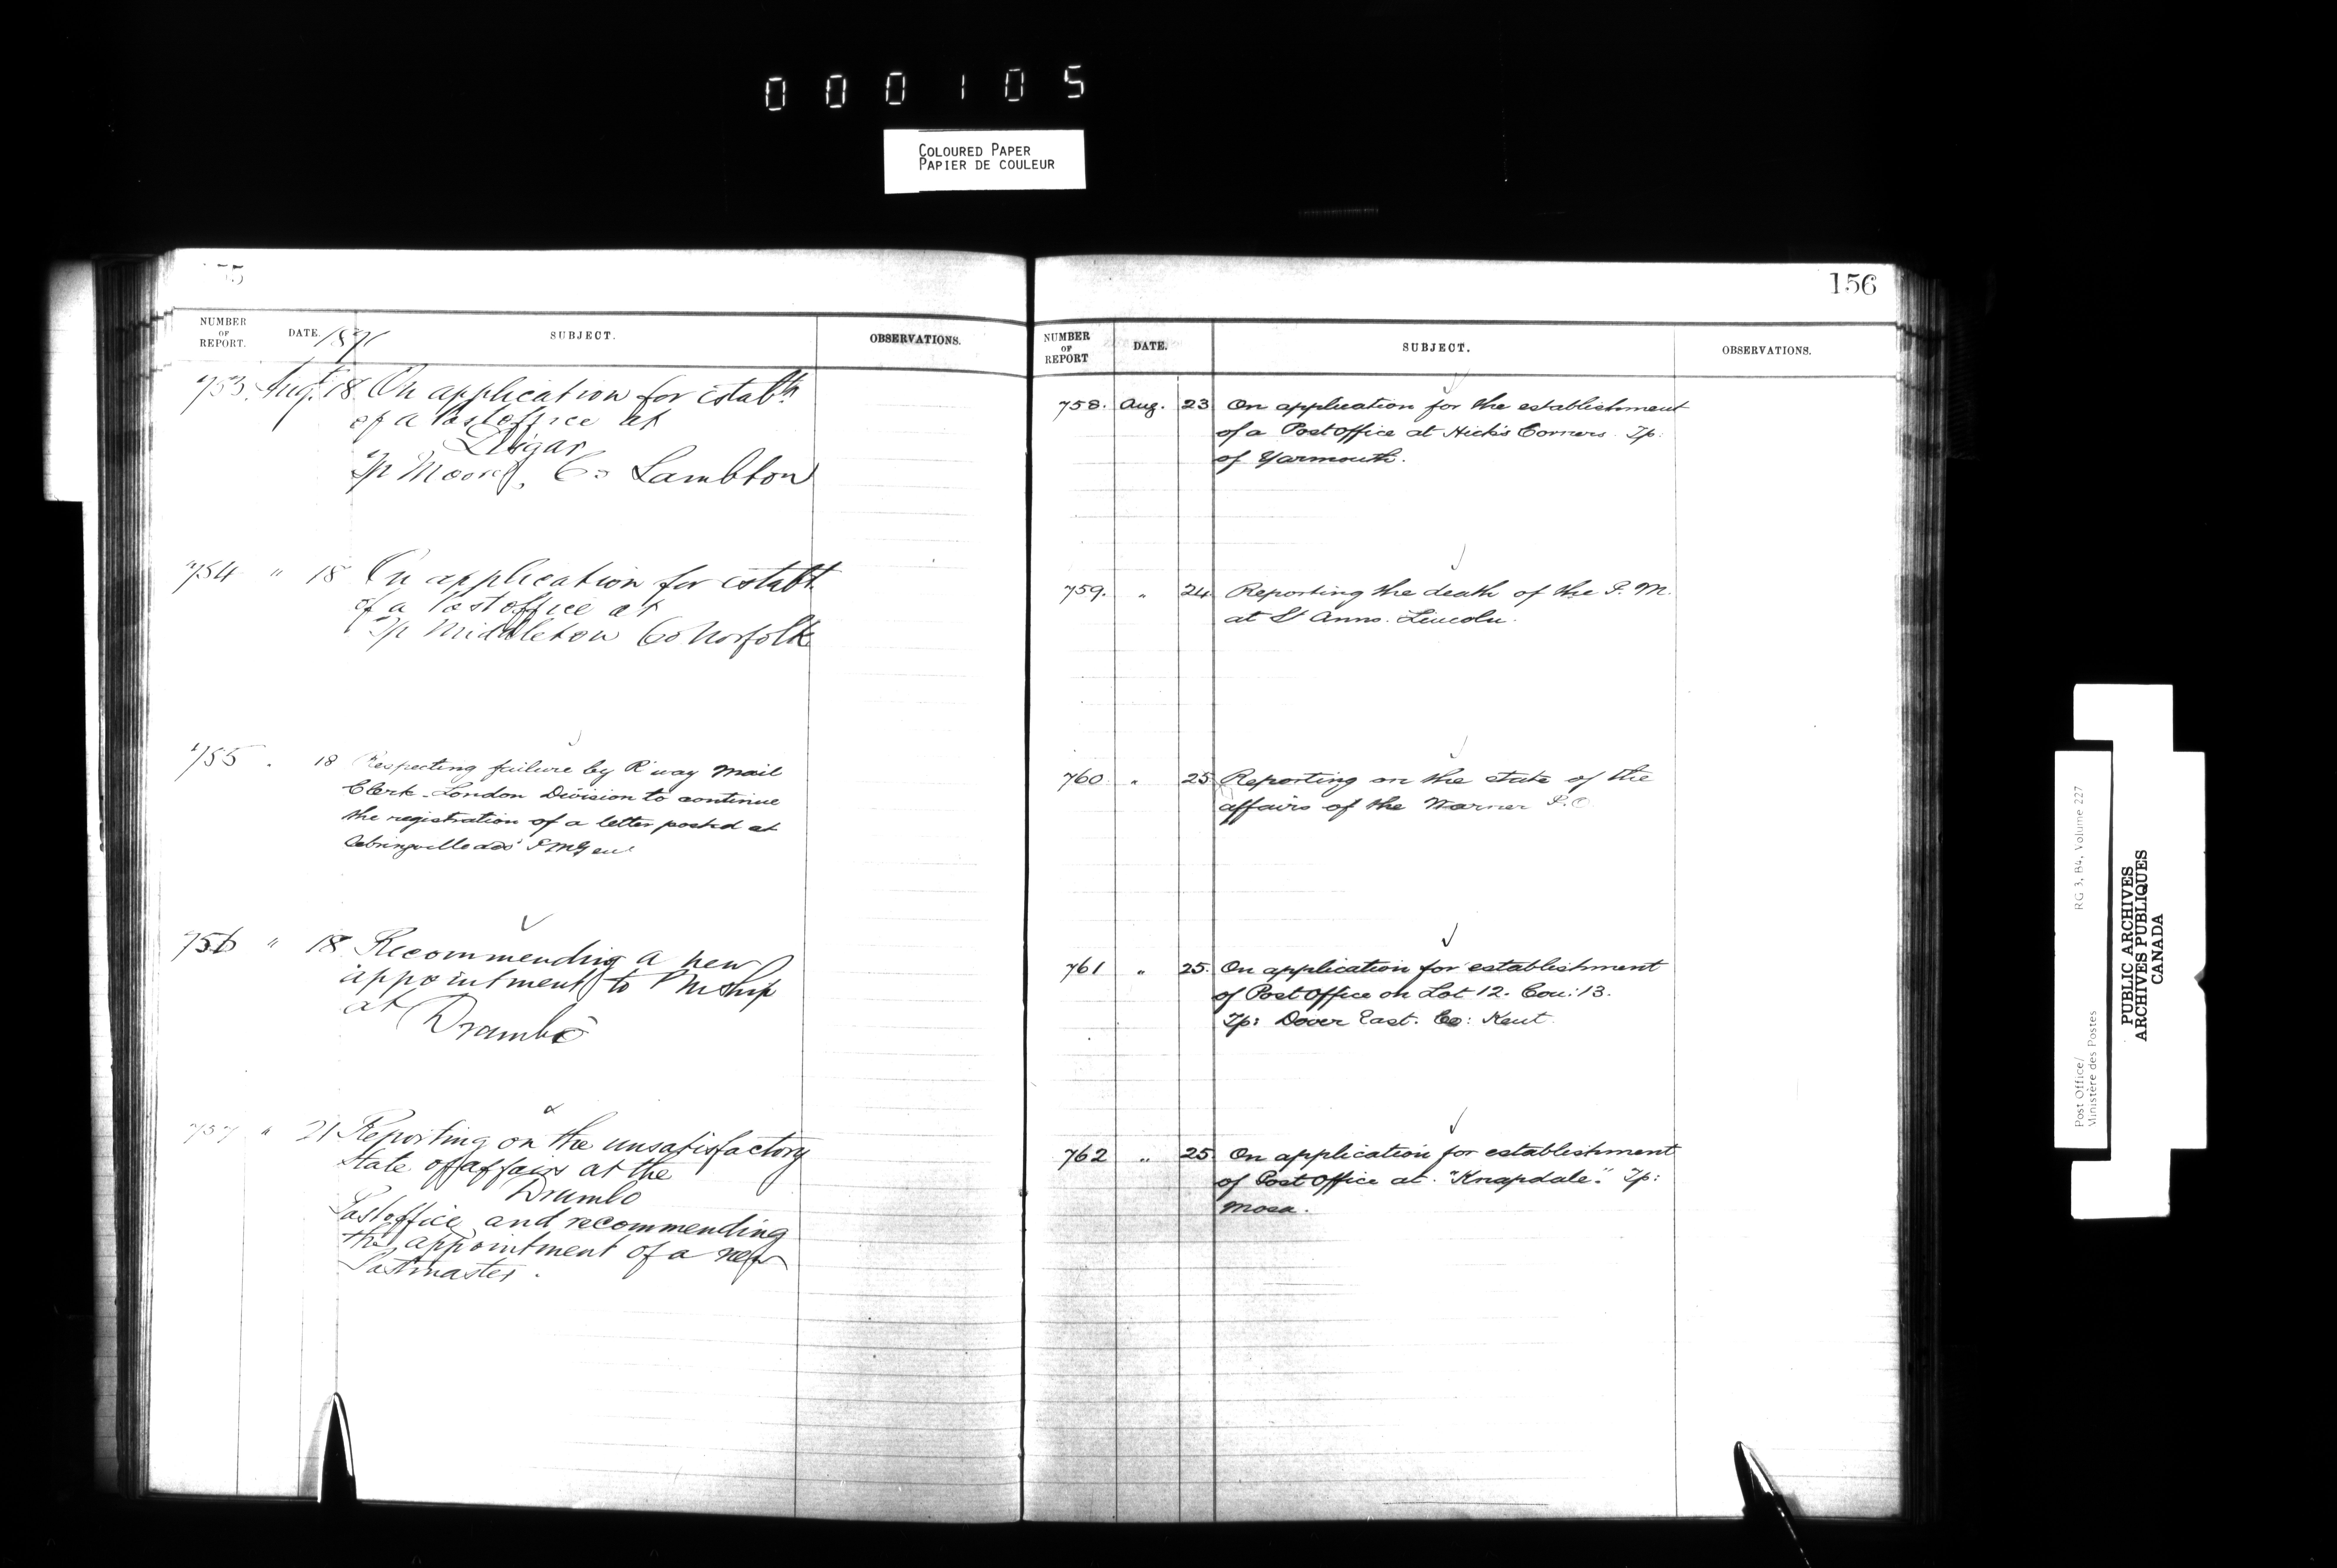 000105
COLOURED PAPER
PAPIER DE COULEUR
NUMBER OF REPORT. DATE. 1871 SUBJECT. OBSERVATIONS.
753. Aug. 18 On application for estabth
of a Postoffice at
Tp Moore, Co Lambton
754 " 18 On application for establt
of a Postoffice at
Tp Middleton Co Norfolk
755 . 18 Respecting failure by R'way Mail
Clerk - London Division to continue
the registration of a letter posted at
Sebringville
756 " 18 Recommending a new
appointment to PMship
at Drumbo
757 " 21 Reporting on the unsatisfactory
state of affairs at the
Drumbo
Postoffice and recommending
the appointment of a new
Postmaster.
156
NUMBER OF REPORT DATE. SUBJECT. OBSERVATIONS.
758. Aug. 23 On application for the establishment
of a Post Office at Hick's Corners. Tp:
of Yarmouth.
759. " 24 Reporting the death of the P. M.
at St Anns. Lincoln.
760 " 25 Reporting on the state of the
affairs of the Warner P.O.
761 " 25. On application for establishment
of Post Office on Lot 12. Con: 13.
Tp: Dover East. Co: Kent.
762 " 25 On application for establishment
of Post Office at "Knapdale". Tp:
Mosa.
Post Office/
Ministère des Postes
RG 3, B4, Volume 227
PUBLIC ARCHIVES
ARCHIVES PUBLIQUES
CANADA